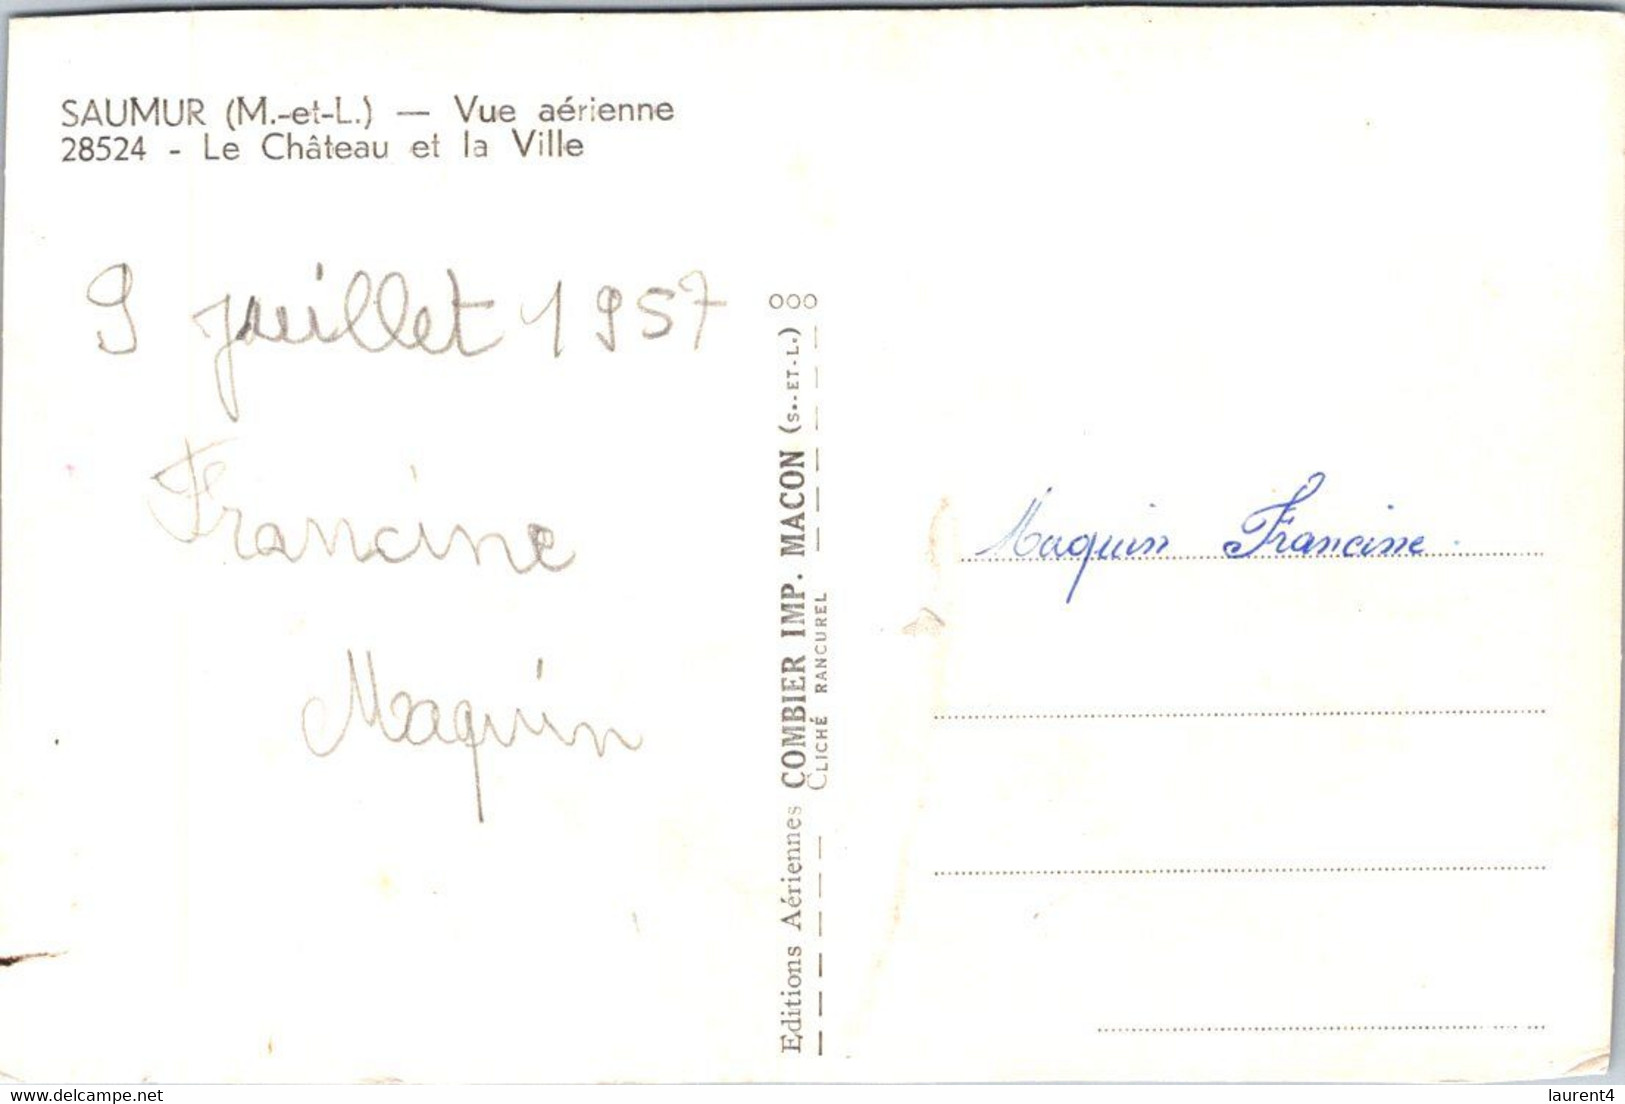 SAUMUR (M.-et-L.) — Vue aérienne
28524 - Le Château et la Ville
9 juillet 1957
Francine
Maquin
Editions Aériennes COMBIER IMP. MACON (S.-ET-L.) OOO
CLICHÉ RANCUREL
Maquin Francine.
www.delcampe.net
laurent4